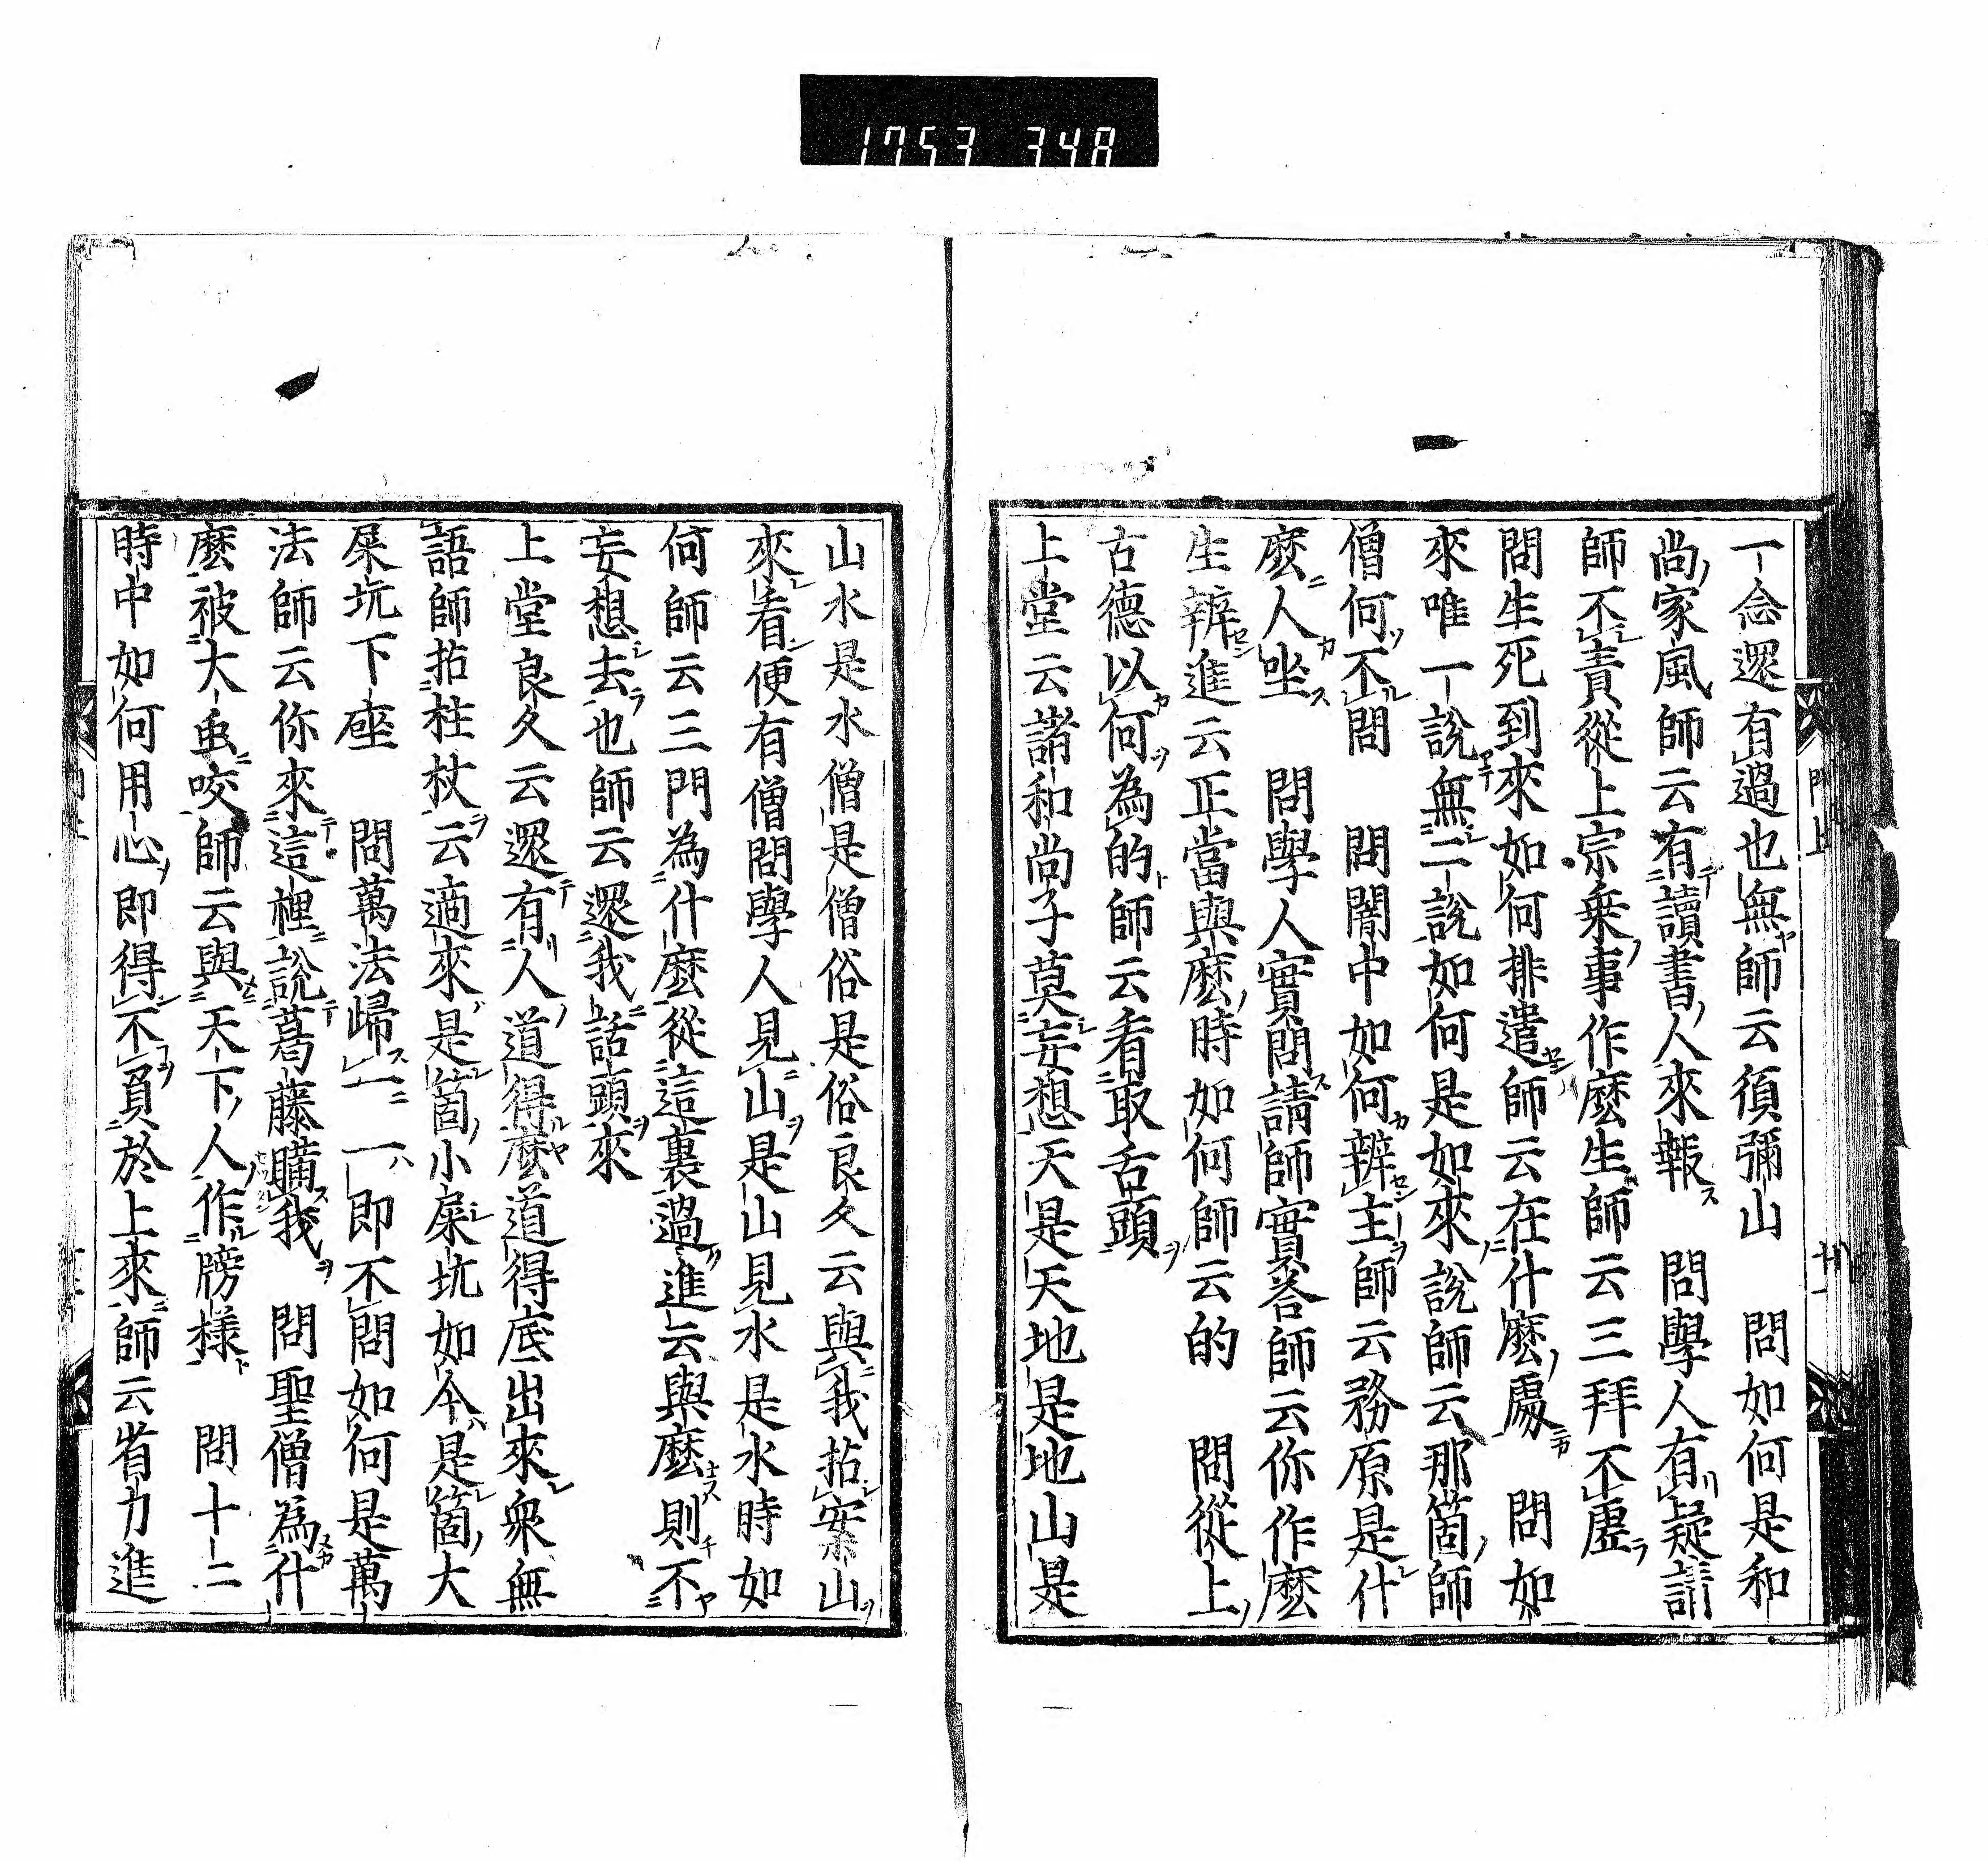 1753 348
一念還有過也無師云須彌山　問如何是和
尚家風師云有讀書人來報　問學人有疑請
師不責從上宗乗事作麼生師云三拜不虛
問生死到來如何排遣師云在什麼處　問如
來唯一說無二說如何是如來說師云那箇師
僧何不問　問闇中如何辨主師云務原是什
麼人坐　問學人實問請師實荅師云你作麼
生辨進云正當與麼時如何師云的　問從上
古德以何為的師云看取舌頭
上堂云諸和尚子莫妄想天是天地是地山是
山水是水僧是僧俗是俗良久云與我拈案山
來看便有僧問學人見山是山見水是水時如
何師云三門為什麼從這裏過進云與麼則不
妄想去也師云還我話頭來
上堂良久云還有人道得麼道得底出來衆無
語師拈柱杖云適來是箇小屎坑如今是箇大
屎坑下座　問萬法歸一一即不問如何是萬
法師云你來這裡說葛藤瞞我　問聖僧為什
麼被大虫咬師云與天下人作牓様　問十二
時中如何用心即得不負於上來師云省力進